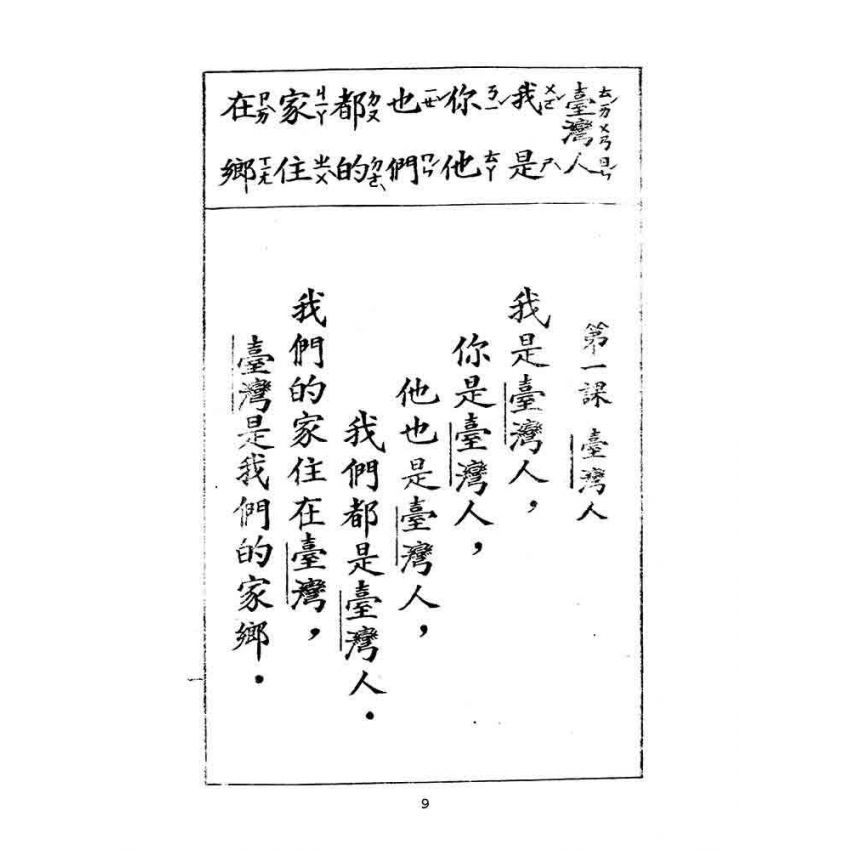 臺ㄊㄞˊ灣ㄨㄢ人ㄖㄣˊ
我ㄨㄛˇ是ㄕˋ
你ㄋㄧˇ他ㄊㄚ
也ㄧㄝˇ們ㄇㄣˊ
都ㄉㄡ的ㄉㄜ˙
家ㄐㄧㄚ住ㄓㄨˋ
在ㄗㄞˋ鄉ㄒㄧㄤ
第一課 臺灣人
我是臺灣人，
你是臺灣人，
他也是臺灣人，
我們都是臺灣人．
我們的家住在臺灣，
臺灣是我們的家鄉．
一
9